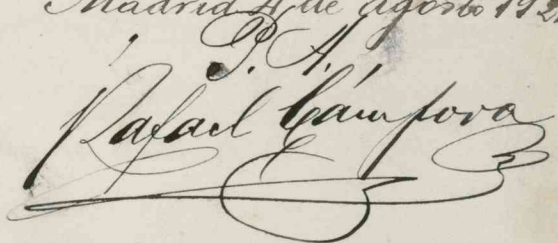 Madrid 4 de agosto 192
P. A.
Rafael Cámpora